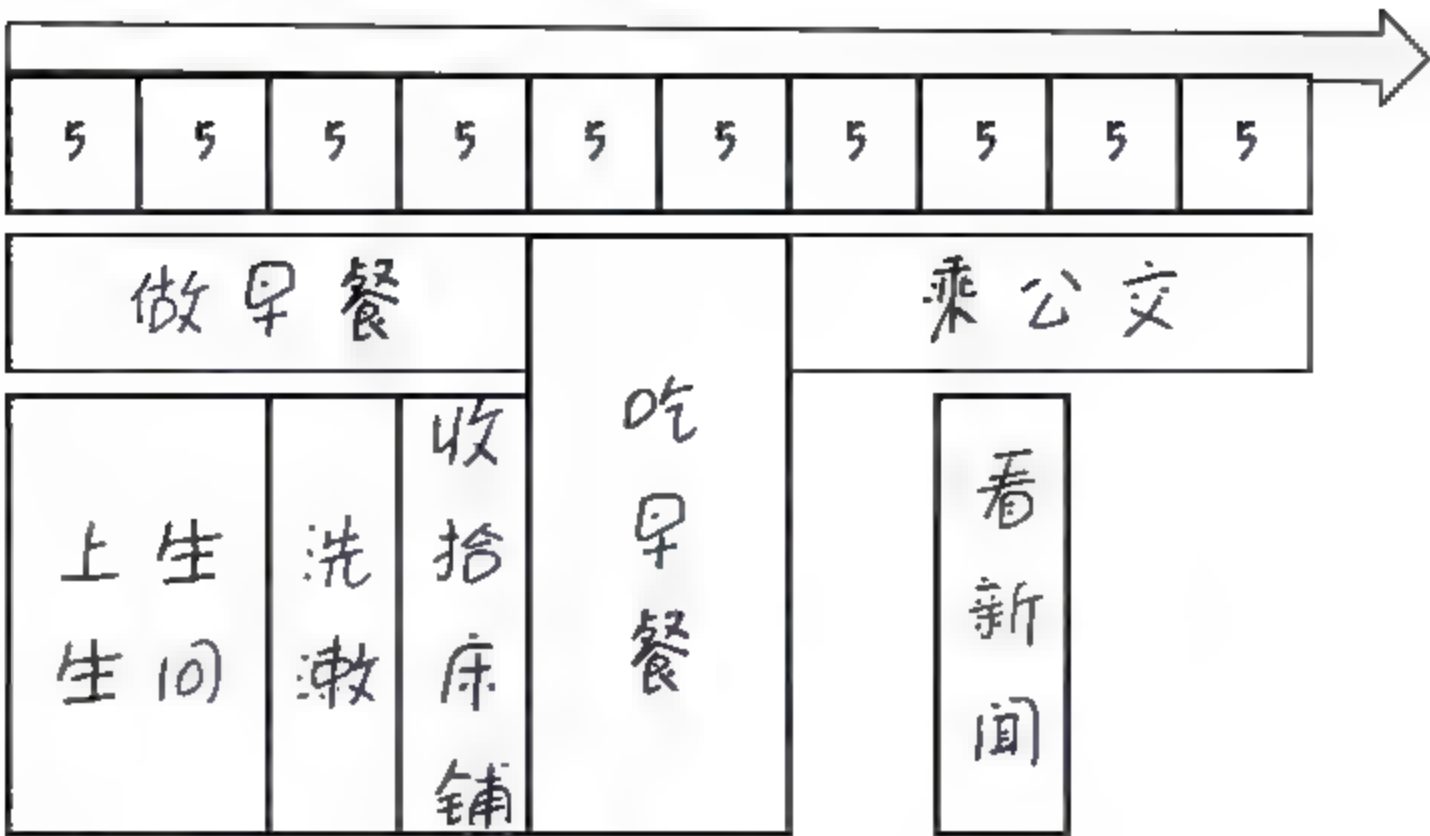 5 5 5 5 5 5 5 5 5 5
做早餐
乘公交
上生
生间
洗漱
收拾床铺
吃早餐
看新闻